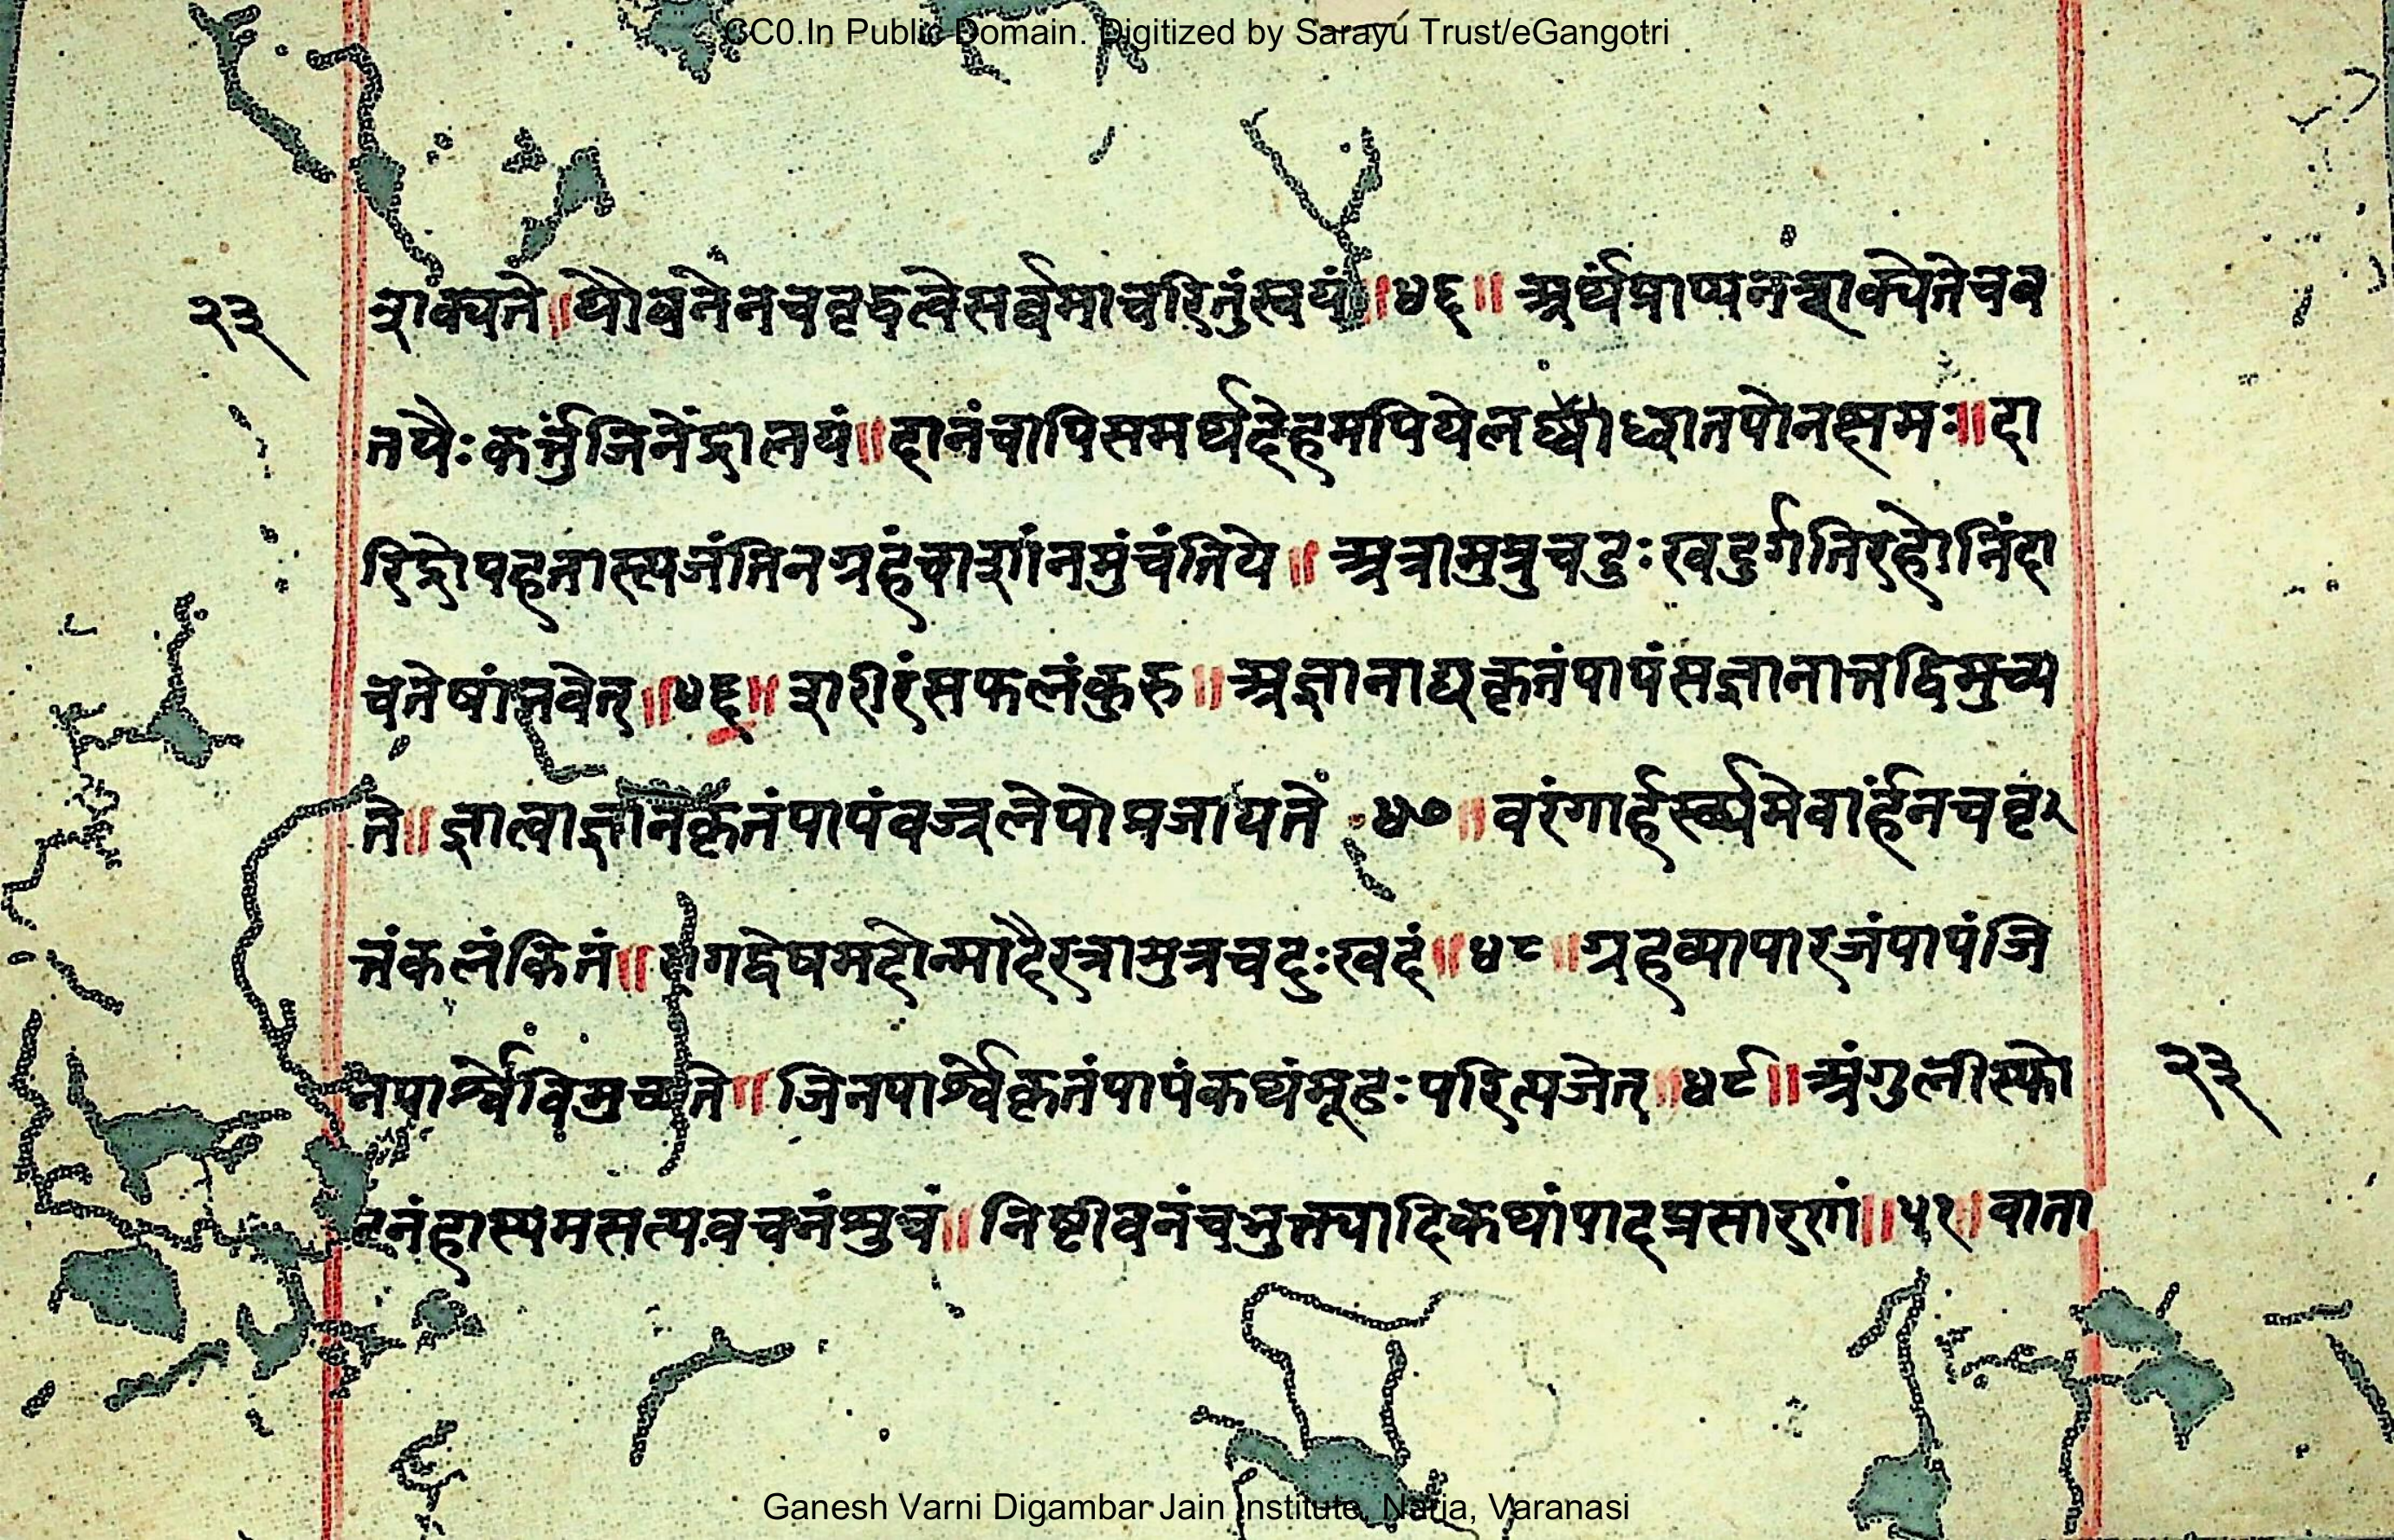 CC0.In Public Domain. Digitized by Sarayu Trust/eGangotri
२३
शक्यते॥यौवनेनचवृद्धत्वेसर्वमाचरितुंस्वयं॥४६॥ अर्थंप्राप्यनशक्यतेचव
तपैःकर्त्तुजिनेंद्रालयं॥दानंचापिसमर्थदेहमपियेलब्ध्वाध्वातपोनत्क्षमः॥दा
रिद्रोपहतास्त्यजंतिनग्रहंचाशांनमुंचंतिये॥ अत्रामुत्रचदुःखदुर्गतिरहोनिंदा
चतेषांभवेत्॥४६॥शरीरंसफलंकुरु॥अज्ञानाद्यत्कृतंपापंसज्ञानात्तद्विमुच्य
ते॥ज्ञात्वाज्ञानकृतंपापंवज्रलेपोप्रजायते ४७॥वरंगार्हस्थ्यमेवार्हंनचवृर
त्तंकलंकितं॥रागद्वेषमदोन्मादैरत्रामुत्रचदुःखदं॥४८॥ग्रहव्यापारजंपापंजि
नपार्श्वेविमुच्यति॥जिनपार्श्वेकृतंपापंकथंमूढःपरित्यजेत्॥४९॥अंगुलीस्फो
२३
टनंहास्यमसत्यवचनंध्रुवं॥निष्टीवनंचभुक्त्यादिकथांपादप्रसारणं॥५१॥वाता
Ganesh Varni Digambar Jain Institute, Naria, Varanasi